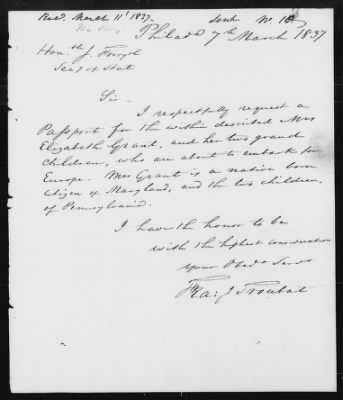 Recd. March 11th 1837.
Sent No. 10
Philada 7th March 1837
Honble J. Forsyth
Secy of State
Sir
I respectfully request a
Passport for the within described Mrs
Elizabeth Grant, and her two grand
children, who are about to embark for
Europe. Mrs Grant is a native born
Citizen of Maryland, and the two children,
of Pennsylvania.
I have the honor to be
with the highest consideration
your Obedt Servt
Fra: J Troubat